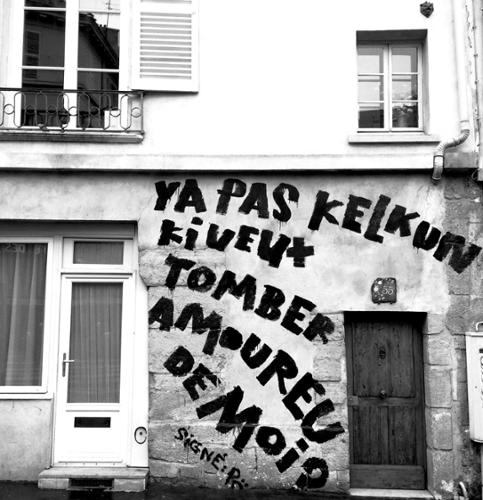 YA PAS KELKUN
KIVEUT
TOMBER
AMOUREU
DE MOI?
SIGNÉ: Pi